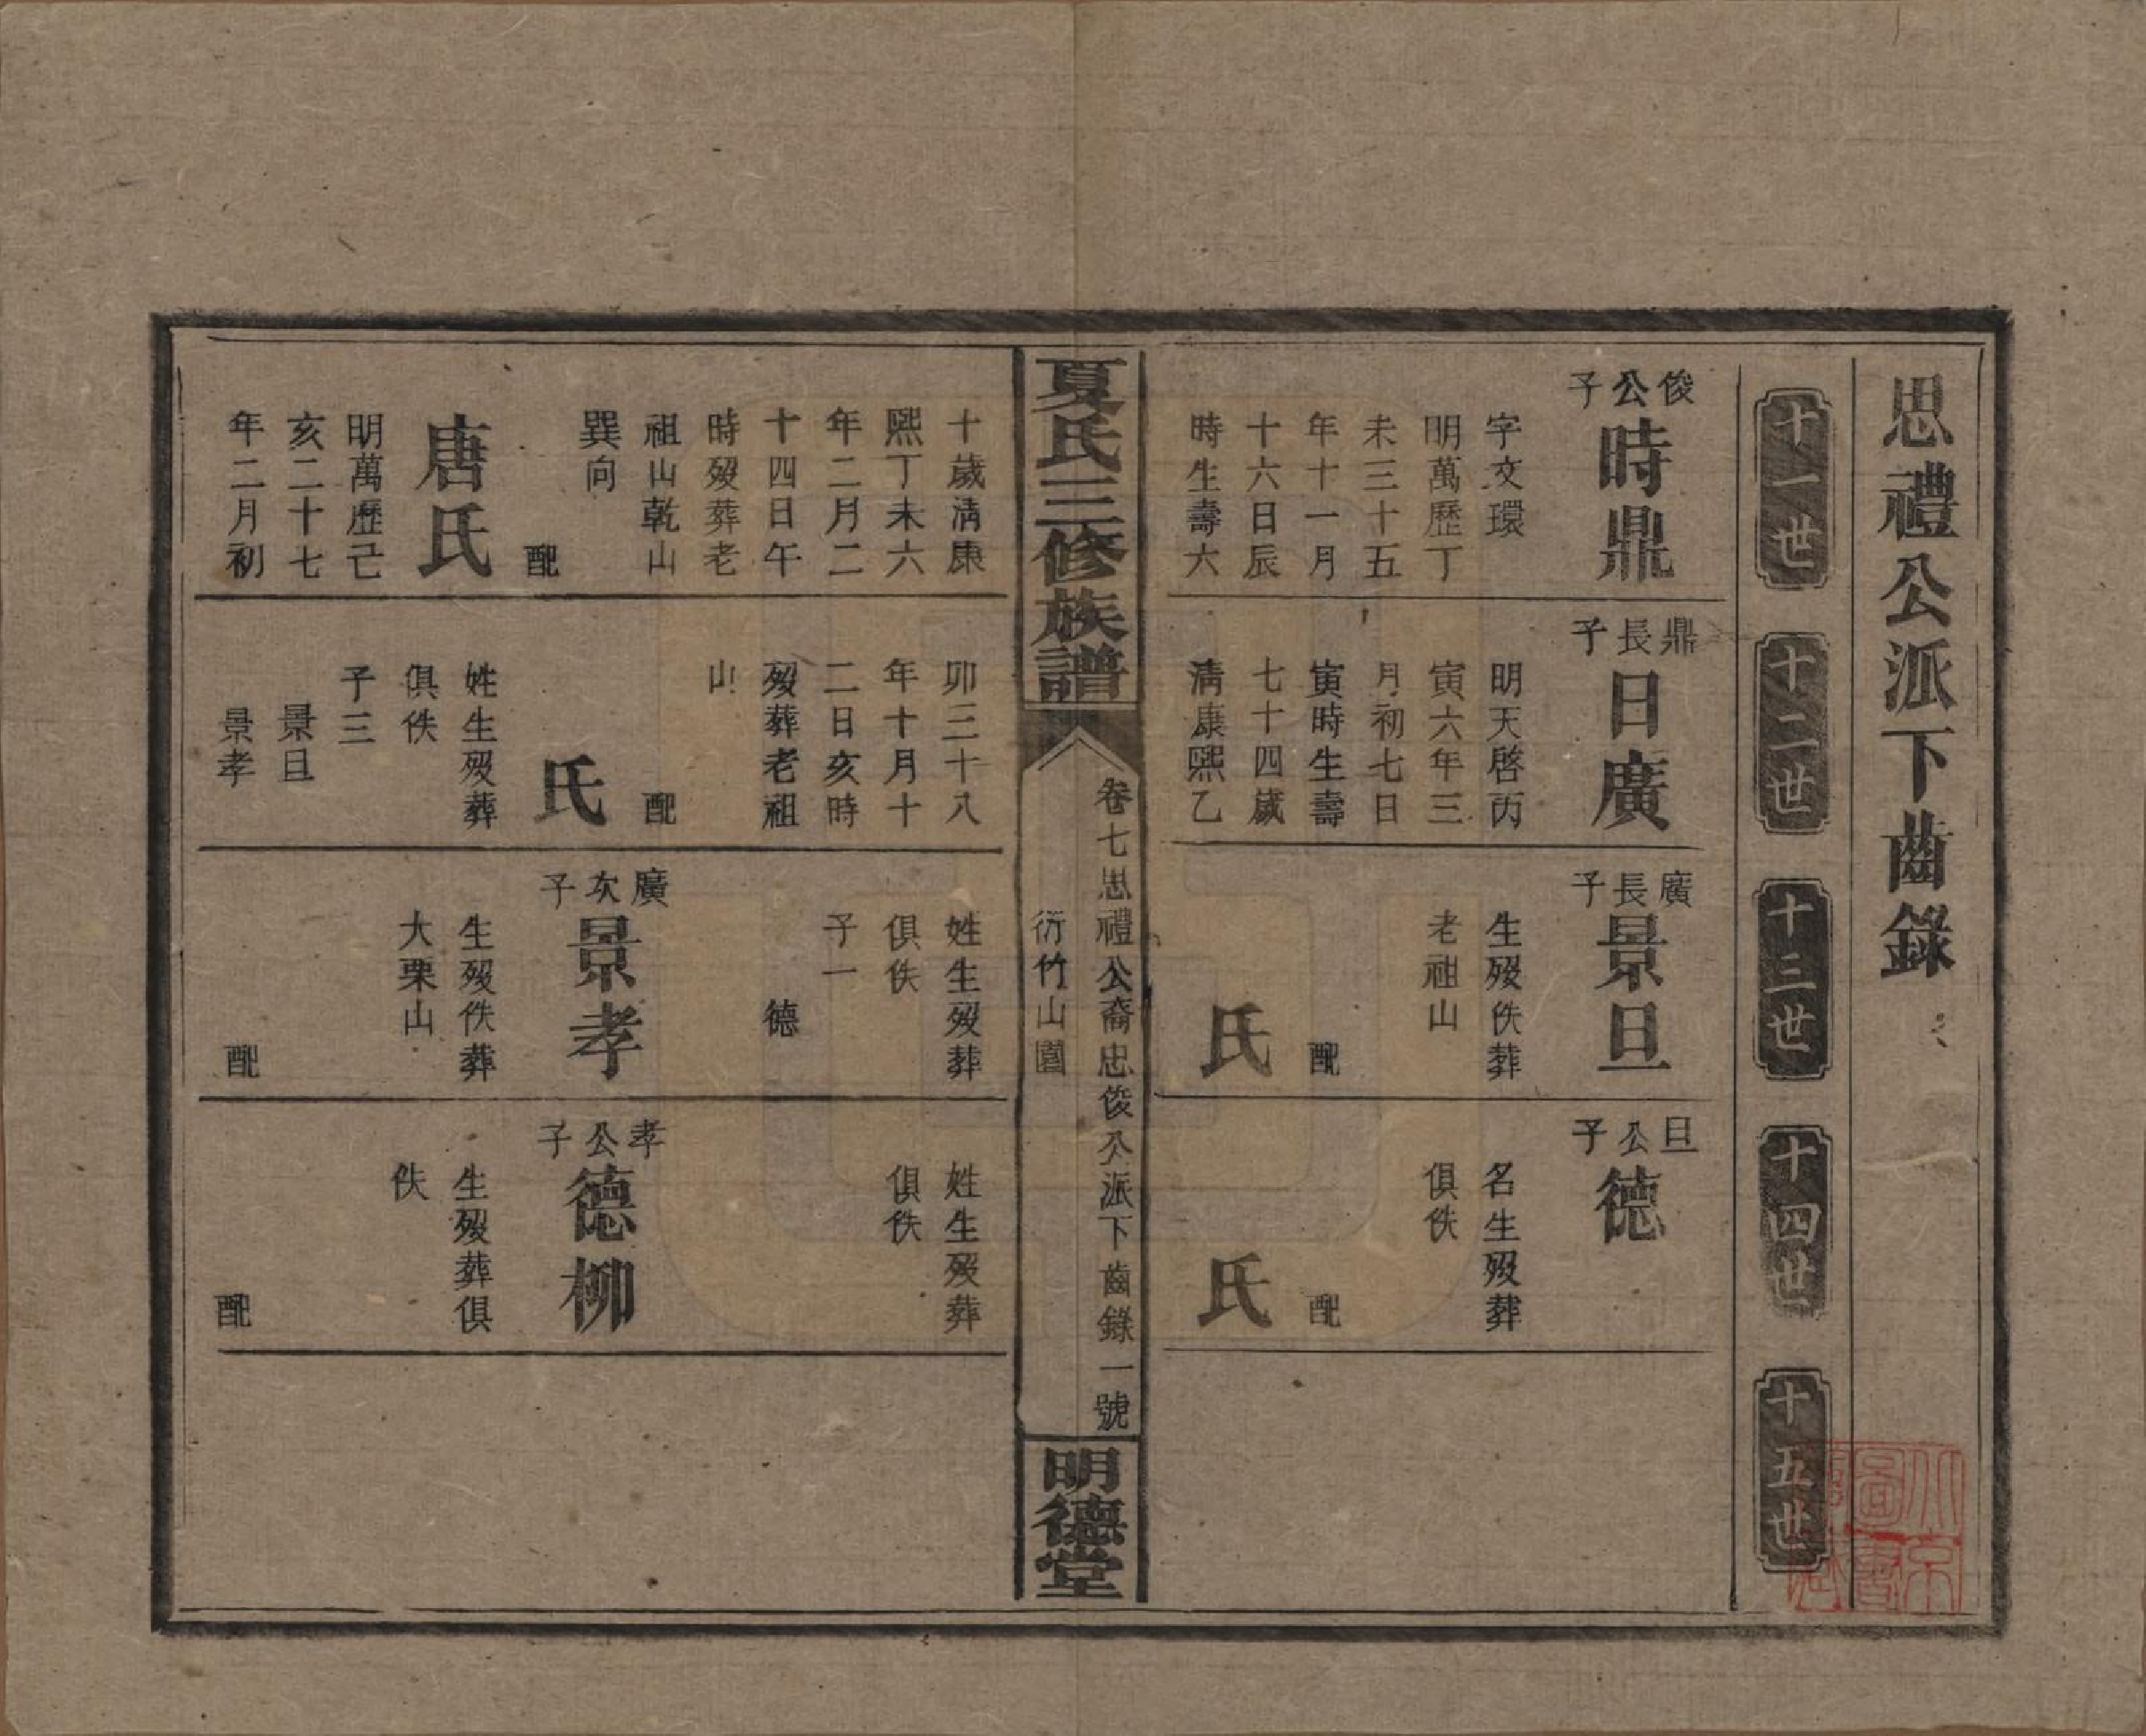 思禮公派下齒錄
十一世
十二世
十三世
十四世
十五世
俊公子
時鼎
字文環
明萬歷丁
未三十五
年十一月
十六日辰
時生壽六
鼎長子
日廣
明天啓丙
寅六年三
月初七日
寅時生壽
七十四歲
清康熙乙
廣長子
景旦
生歿佚葬
老祖山
配
氏
旦公子
德
名生歿葬
俱佚
配
氏
夏氏三修族譜
卷七思禮公裔忠俊公派下齒錄一號
衍竹山園
明德堂
十歲清康
熙丁未六
年二月二
十四日午
時歿葬老
祖山乾山
巽向
配
唐氏
明萬歷己
亥二十七
年二月初
卯三十八
年十月十
二日亥時
歿葬老祖
山
配
氏
姓生歿葬
俱佚
子三
景旦
景孝
姓生歿葬
俱佚
子一
德
廣次子
景孝
生歿佚葬
大栗山
配
姓生歿葬
俱佚
孝公子
德柳
生歿葬俱
佚
配